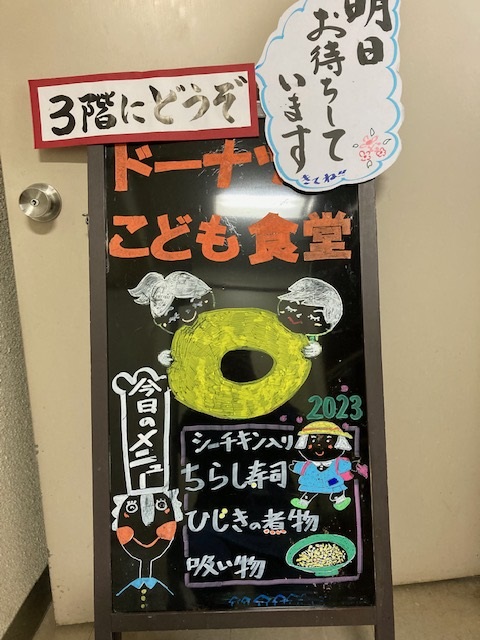 明日
お待ちして
います
きてね
3階にどうぞ
ドーナツ
こども食堂
2023
今日のメニュー
シーチキン入り
ちらし寿司
ひじきの煮物
吸い物